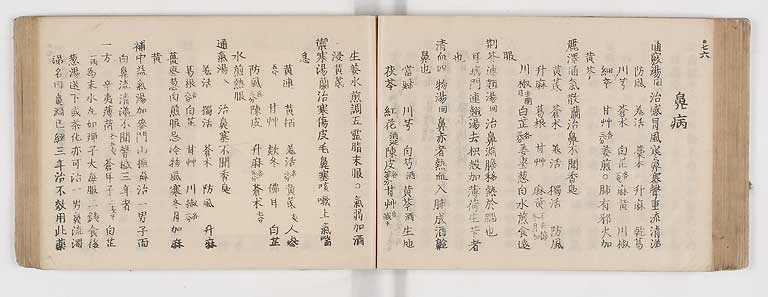 六七
鼻病
通竅湯 治感冒風寒鼻塞聲重流清涕
防風 羌活 藁本 升麻 乾葛
川芎 蒼木 白芷 麻黃 川椒
細辛 甘艸 煎 肺有邪火加
黃芩
麗澤通氣散 治鼻不聞香臭
黃芪 蒼木 羌活 獨活 防風
升麻 葛根 甘艸 麻黃
川椒 白芷 棗 葱白 水煎食遠
服
荊芩連翹湯 治鼻淵膿移熱於腦也
耳病門連翹湯去枳殼加薄荷生芐者
也
清血四物湯 鼻赤者熱血入肺成酒齄
鼻也
當歸 川芎 白芍 黃芩 生地
茯苓 紅花 陳皮 甘艸
生姜水煎調五靈脂末服 氣弱加酒
浸黃芪
禦寒湯 治寒傷皮毛鼻塞咳嗽上氣喘
息
黃連 黃栢 羌活 黃芪 人參
甘艸 款冬 佛耳 白芷
防風 陳皮 升麻 蒼木
水煎熱服
通氣湯 治鼻塞不聞香臭
羌活 獨活 蒼木 防風 升麻
葛根 白芷 甘艸 川椒
薑棗葱白煎服忌冷物風寒冬月加麻
黃
補中益氣湯加麥門山梔 治一男子面
白鼻流清涕不聞馨穢三年者
一方 辛夷 薄荷 蒼耳子 白芷
為末水丸如彈子大每服二錢食後
葱湯送下或茶化亦可 治一男鼻流濁
涕名曰鼻淵已經三年治不效用此藥